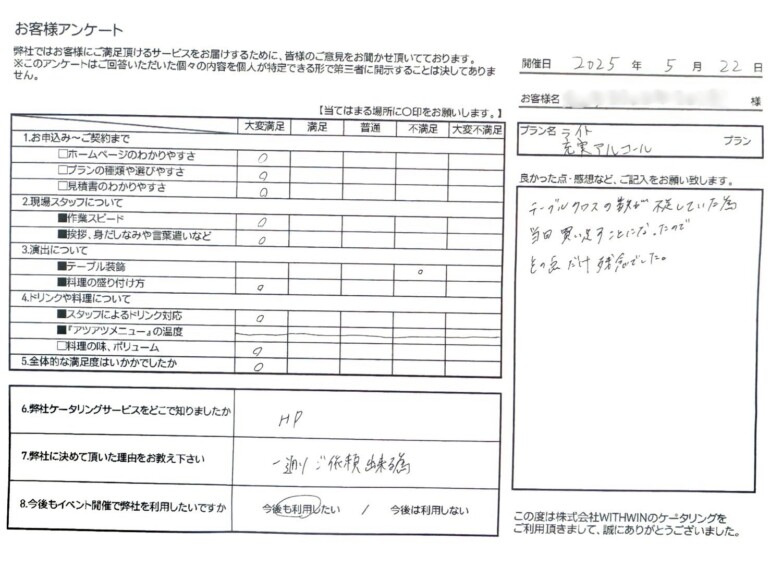 お客様アンケート
弊社ではお客様にご満足頂けるサービスをお届けするために、皆様のご意見をお聞かせ頂いてております。
※このアンケートはご回答いただいた個々の内容を個人が特定できる形で第三者に開示することは決してありま
せん。
【当てはまる場所に〇印をお願いします。】
大変満足 満足 普通 不満足 大変不満足
1.お申込み～ご契約まで
□ホームページのわかりやすさ ○
□プランの種類や選びやすさ ○
□見積書のわかりやすさ ○
2.現場スタッフについて
■作業スピード ○
■挨拶、身だしなみや言葉遣いなど ○
3.演出について
■テーブル装飾 ○
■料理の盛り付け方 ○
4.ドリンクや料理について
■スタッフによるドリンク対応 ○
■『アツアツメニュー』の温度
□料理の味、ボリューム ○
5.全体的な満足度はいかがでしたか ○
6.弊社ケータリングサービスをどこで知りましたか HP
7.弊社に決めて頂いた理由をお教え下さい 一通りご依頼出来る為
8.今後もイベント開催で弊社を利用したいですか 今後も利用したい / 今後は利用しない
開催日 2025 年 5 月 22 日
お客様名 様
プラン名 ライト
充実アルコール プラン
良かった点・感想など、ご記入をお願い致します。
テーブルクロスの数が不足していた為
当日買い足すことになったので
その点だけ残念でした。
この度は株式会社WITHWINのケータリングを
ご利用頂きまして、誠にありがとうございました。